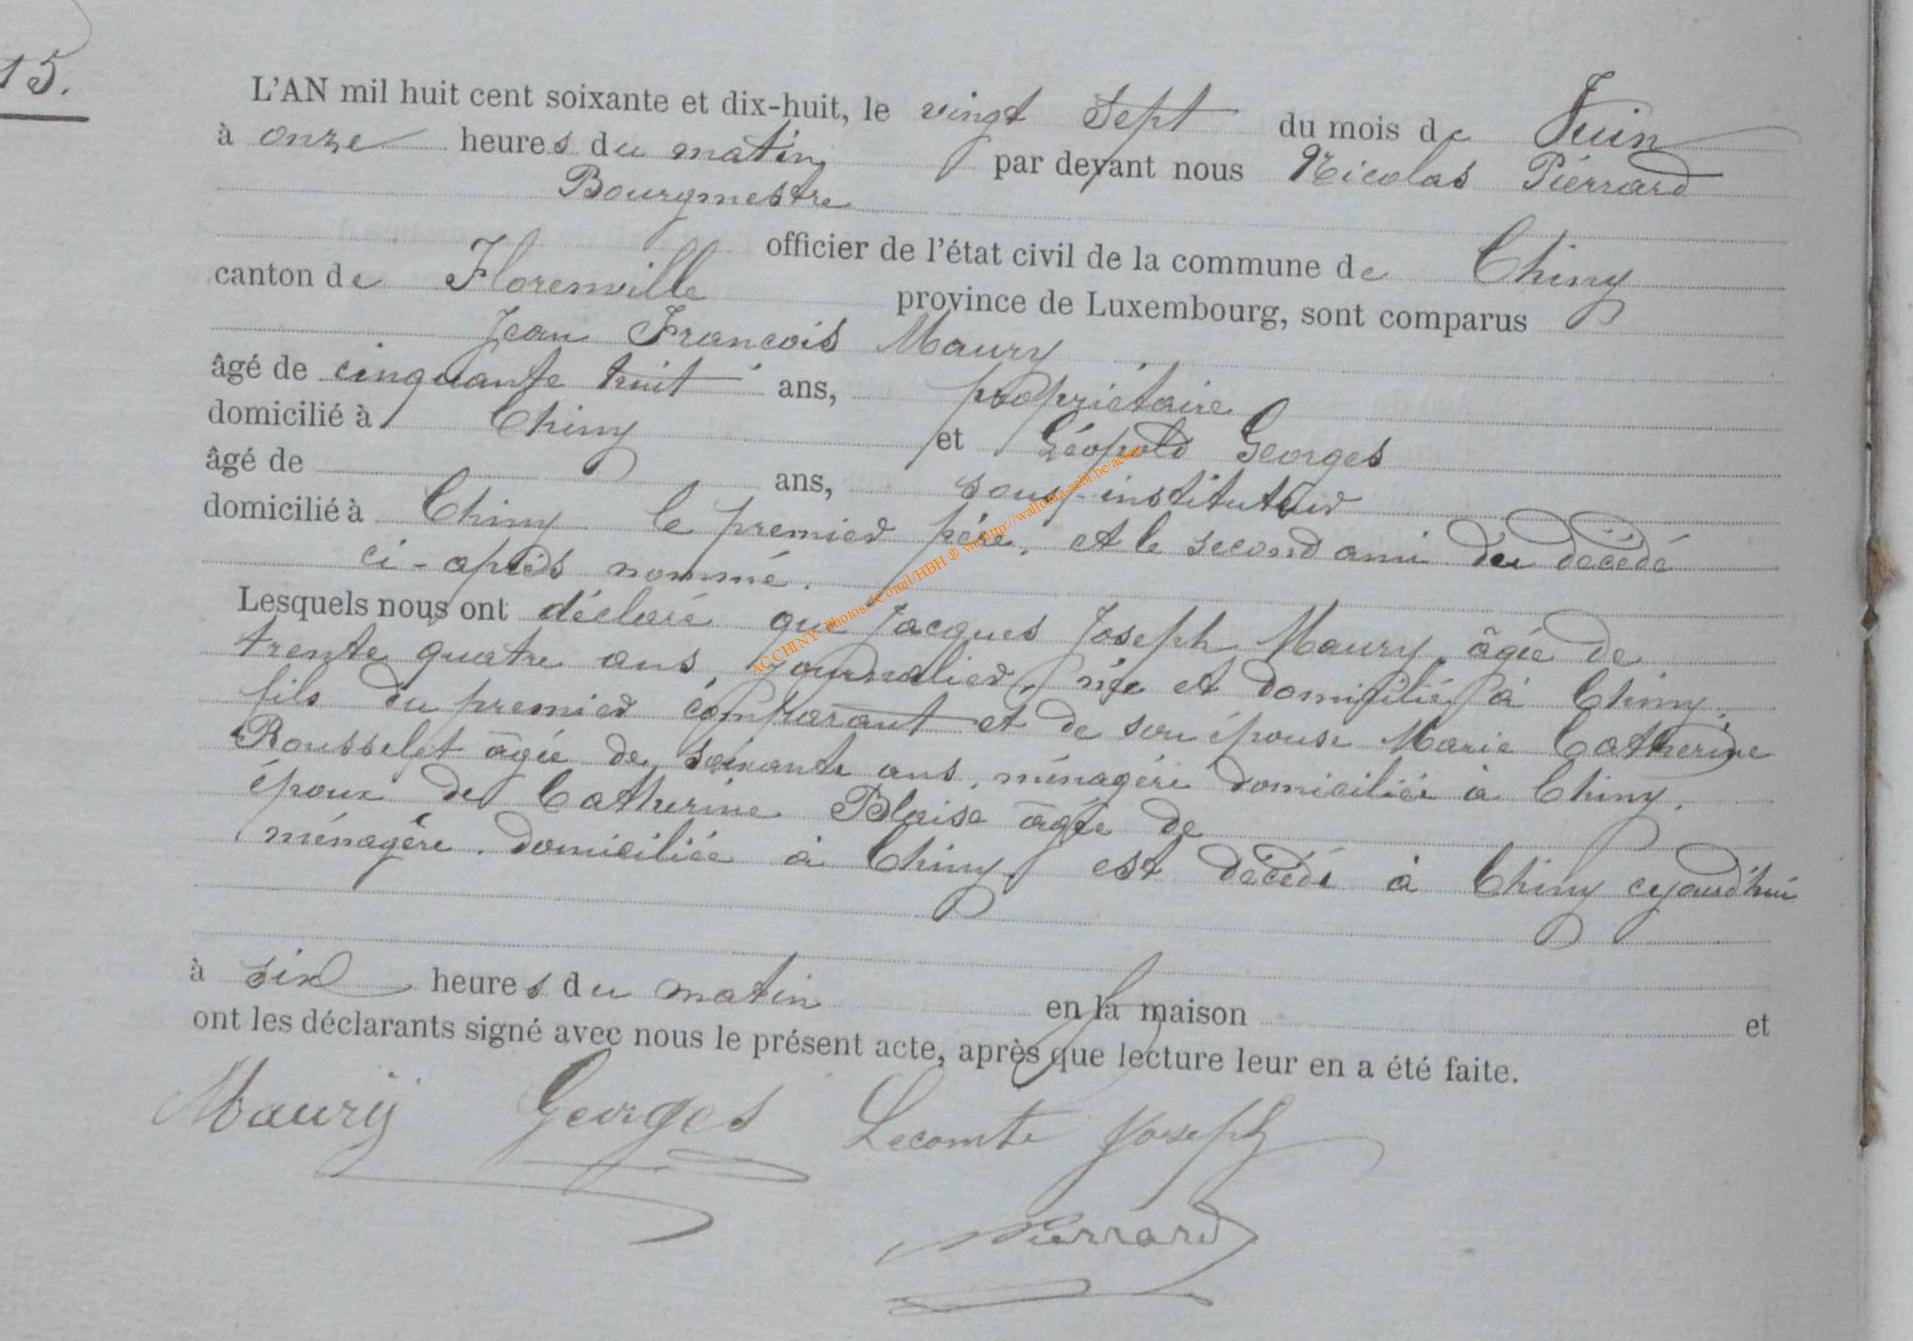 15.
L'AN mil huit cent soixante et dix-huit, le vingt sept du mois de Juin
à onze heures du matin par devant nous Nicolas Piérrard
Bourgmestre
officier de l'état civil de la commune de Chiny
canton de Florenville province de Luxembourg, sont comparus
Jean Francois Maury
âgé de cinquante huit ans, propriétaire
domicilié à Chiny et Léopold Georges
âgé de ans, sous-instituteur
domicilié à Chiny le premier père, et le second ami du décédé
ci-après nommé.
Lesquels nous ont déclaré que Jacques Joseph Maury, âgée de
trente quatre ans, journalier, née et domicilié à Chiny,
fils du premier comparant et de son épouse Marie Catherine
Rousselet âgée de soixante ans, ménagère domiciliée à Chiny,
époux de Catherine Blaise âgée de
ménagère, domiciliée à Chiny, est décédé à Chiny cejourd'hui
à six heures du matin en la maison et
ont les déclarants signé avec nous le présent acte, après que lecture leur en a été faite.
Maury Georges Lecomte Joseph
Pierrard
AC CHINY- Photos JCornil/HBH ® via http://wallonia-asbl.be/actes